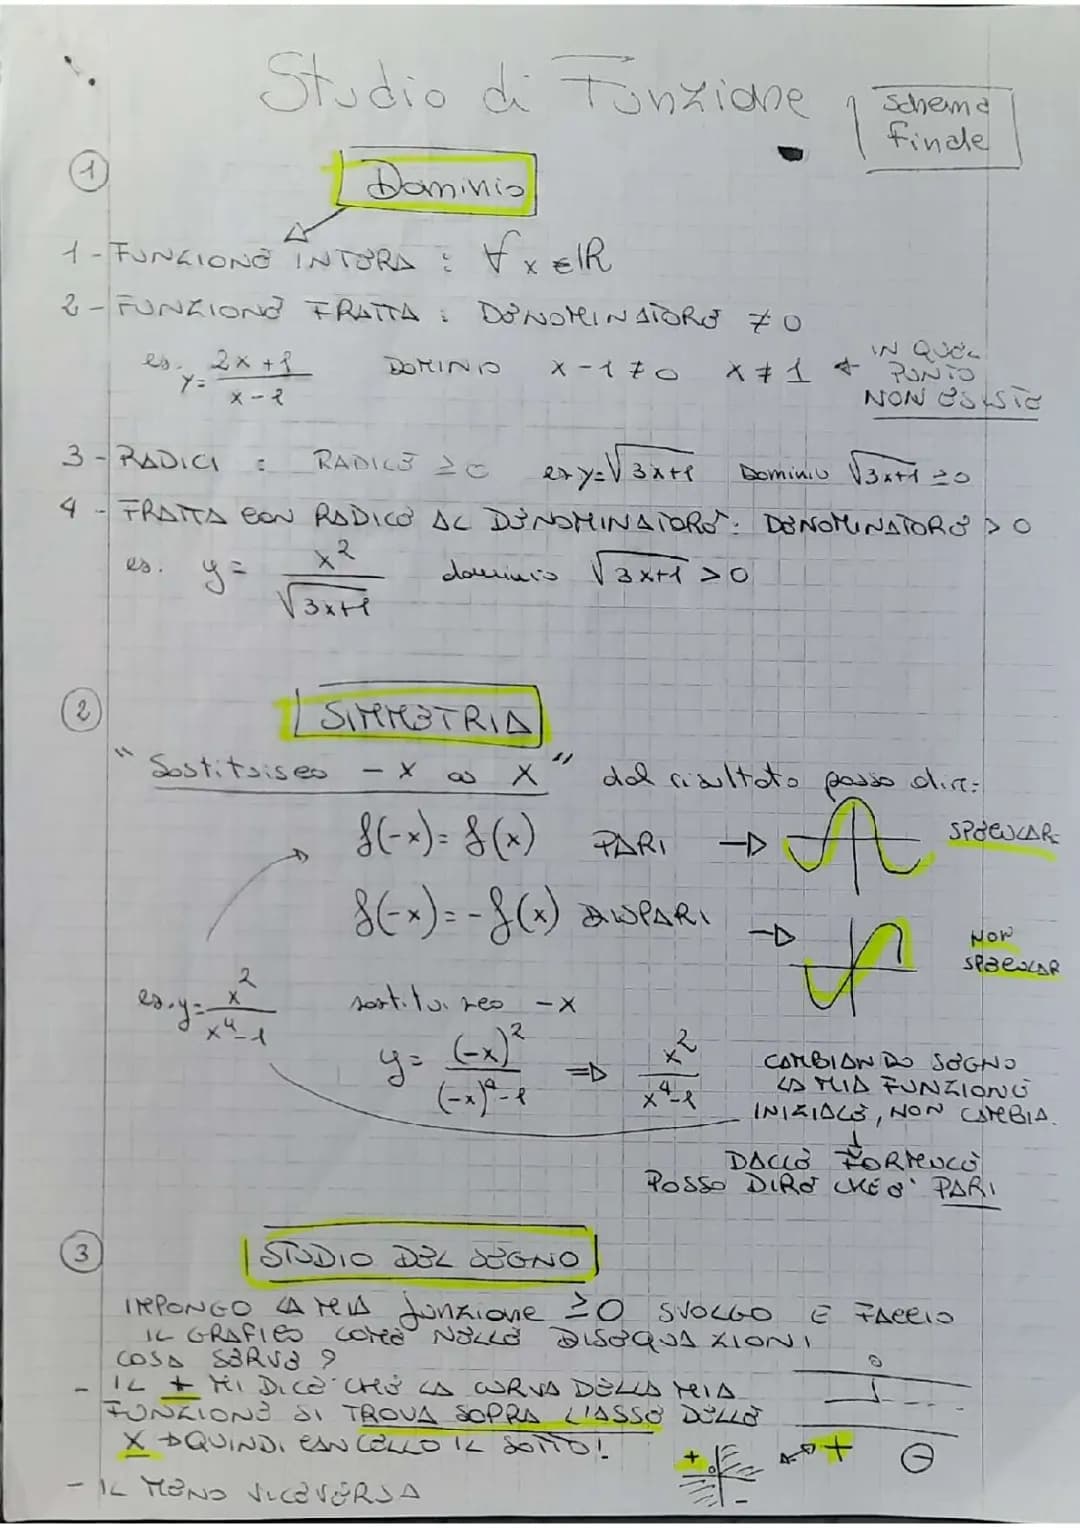 Studio di Funzione
Schema
finale
1
Dominio
1 - FUNZIONE INTERA : ∀ x ∈ R
2 - FUNZIONE FRATTA : DENOMINATORE ≠ 0
es. y= 2x+1 / x-1 DOMINIO x-1≠0 x≠1 ← IN QUEL
PUNTO
NON ESISTE
3 - RADICI : RADICE ≥0 es y=√3x+1 Dominio √3x+1 ≥0
4 - FRATTA CON RADICE AL DENOMINATORE: DENOMINATORE >0
es. y= x² / √3x+1 dominio √3x+1 >0
2
SIMMETRIA
"Sostituisco -x a x" dal risultato posso dire:
f(-x)=f(x) PARI → SPECULARE
f(-x)=-f(x) DISPARI → NON
SPECULAR
es. y= x² / x⁴-1 sostituisco -x
y= (-x)² / (-x)⁴-1 ⇒ x² / x⁴-1 CAMBIANDO SEGNO
LA MIA FUNZIONE
INIZIALE, NON CAMBIA.
↓
DALLE FORMULE
POSSO DIRE CHE È PARI
3
STUDIO DEL SEGNO
IMPONGO LA MIA funzione ≥0 SVOLGO E FACCIO
IL GRAFICO COME NELLE DISEQUAZIONI
COSA SERVE ?
- IL + MI DICE CHE LA CURVA DELLA MIA
FUNZIONE SI TROVA SOPRA L'ASSE DELLE
X → QUINDI CANCELLO IL SOTTO!
0
+ -
+ -
- IL MENO VICEVERSA